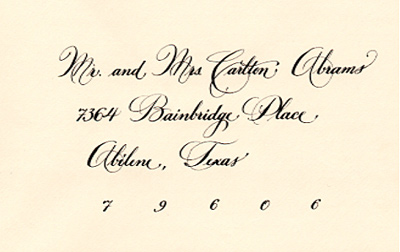 Mr. and Mrs Carlton Abrams
7364 Bainbridge Place,
Abilene, Texas
7 9 6 0 6